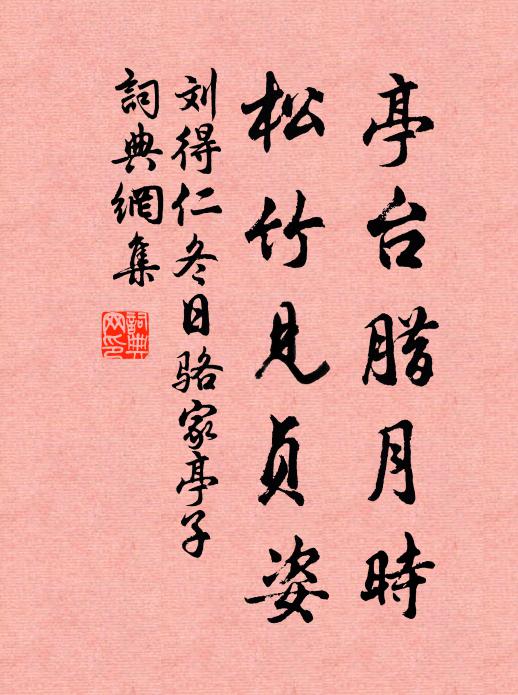 亭台腊月時
松竹見貞姿
刘得仁冬日骆家亭子
詞典網集
詞典网印